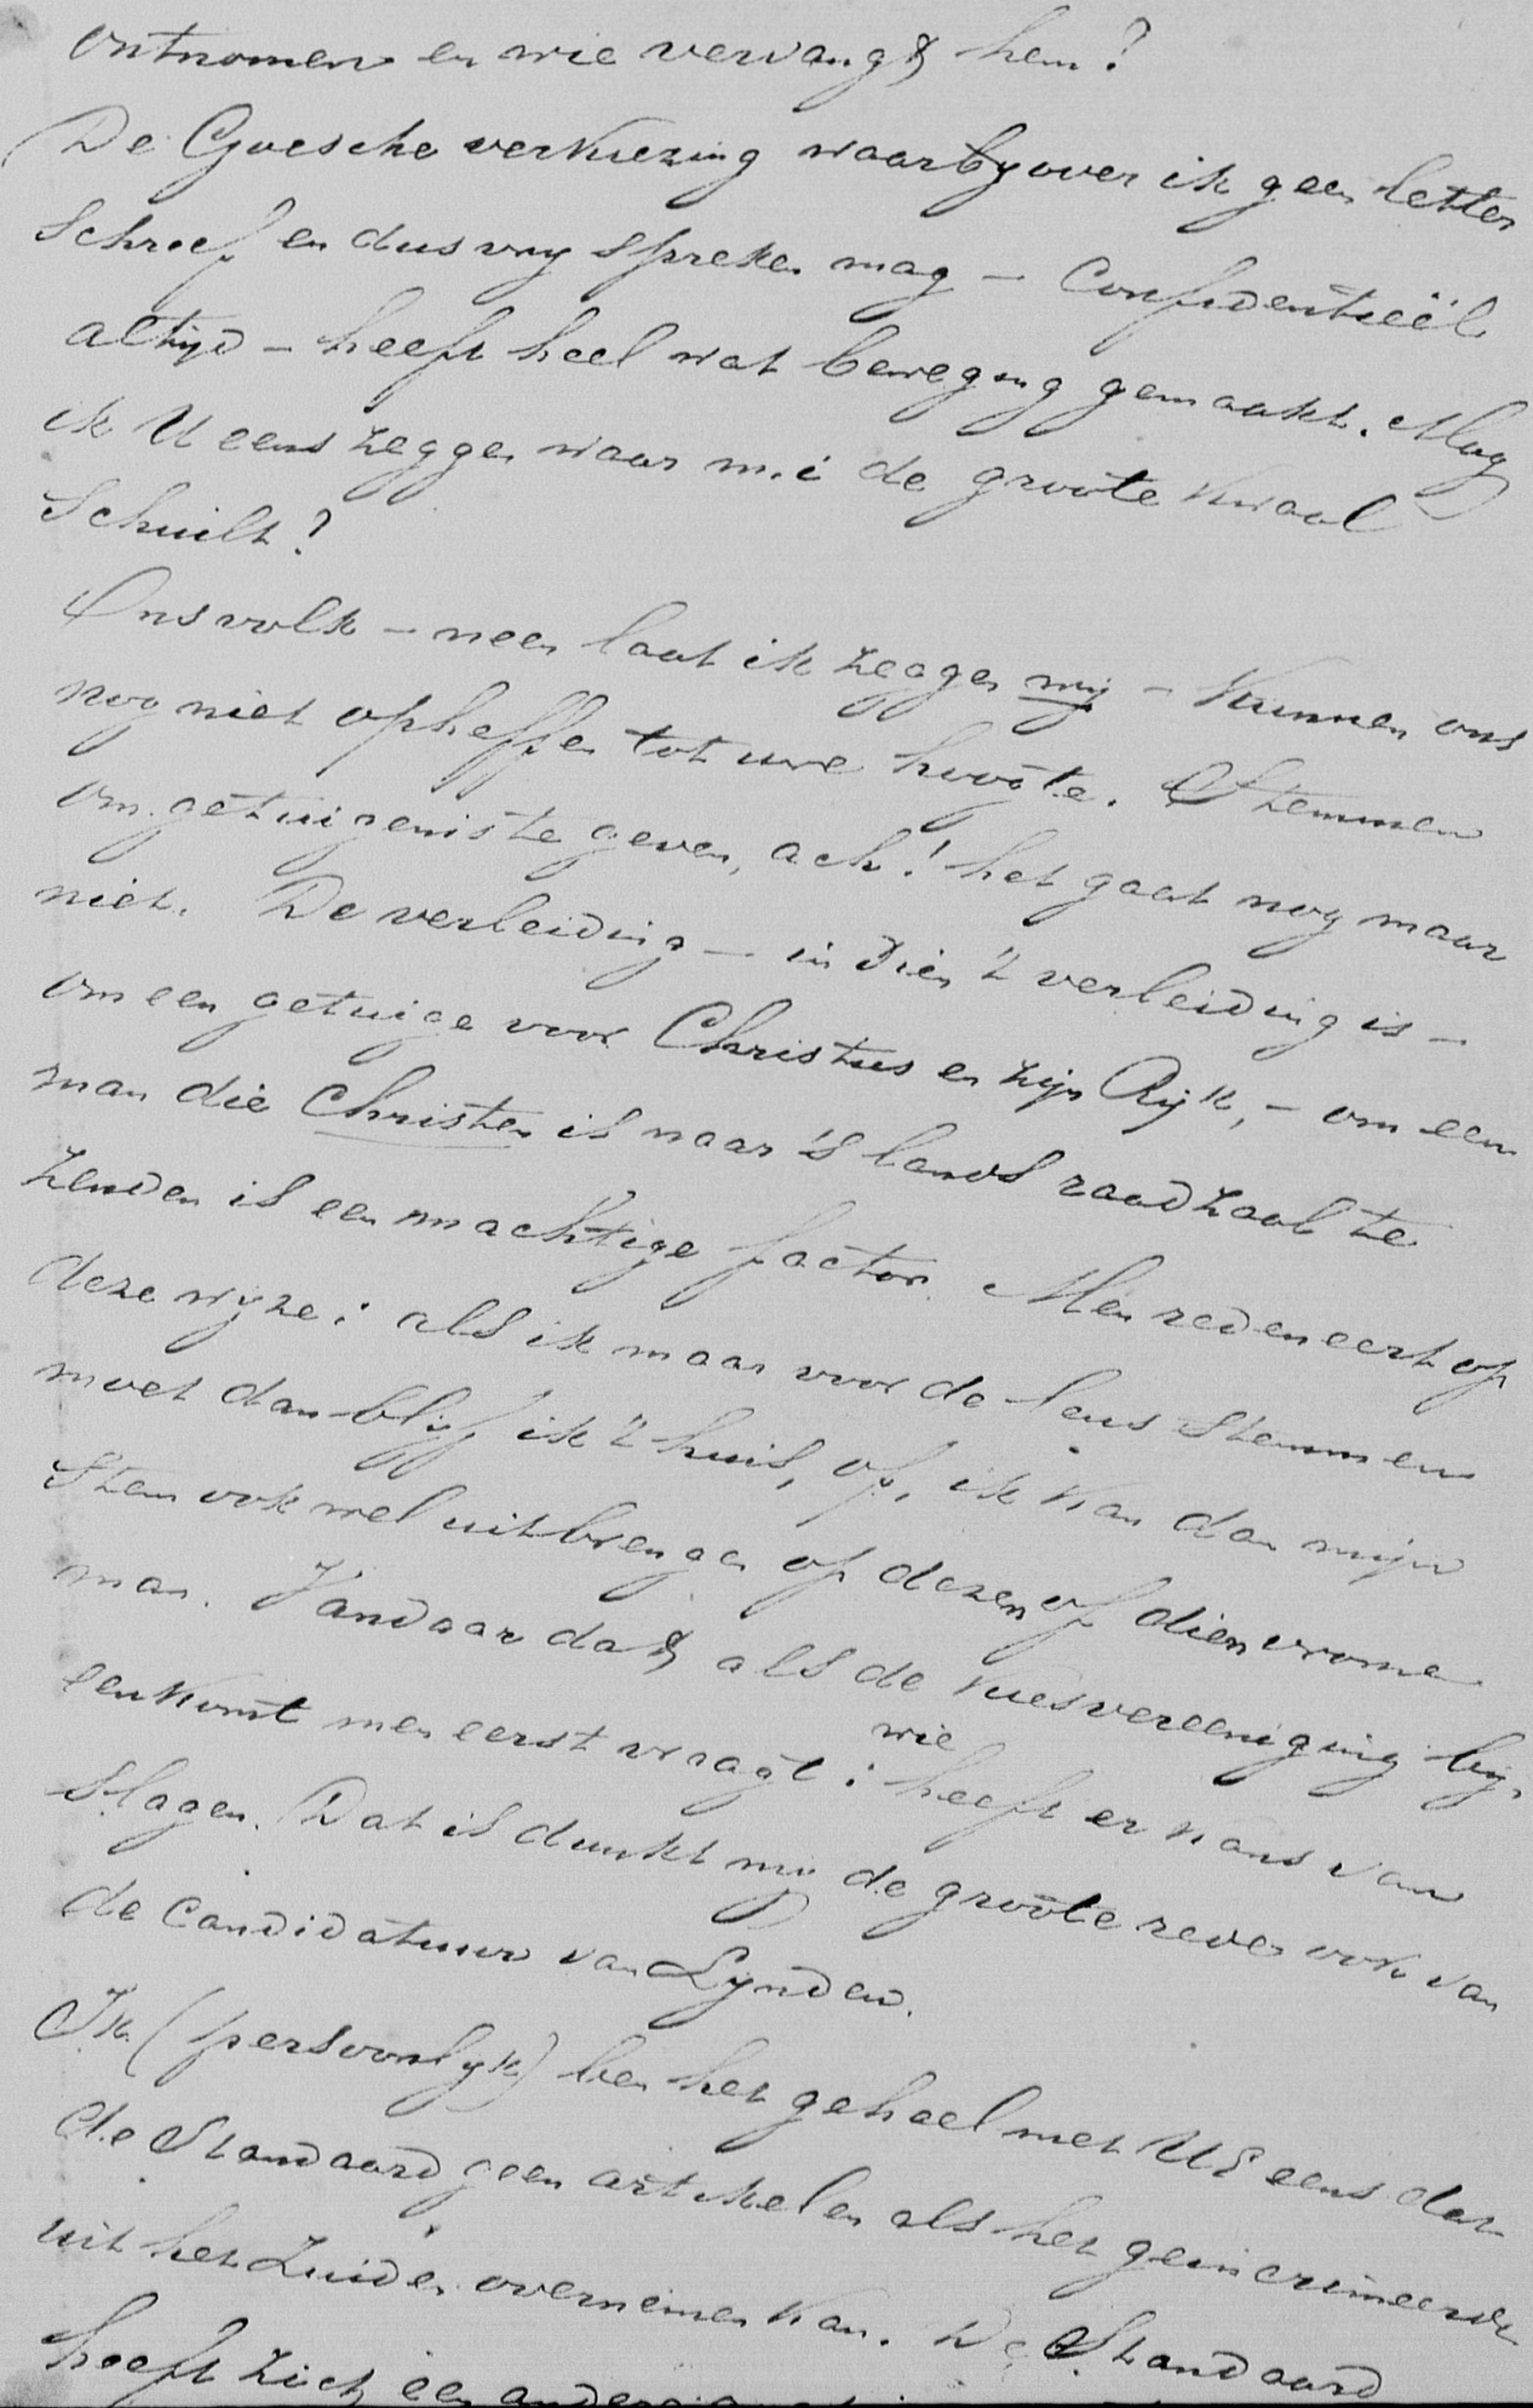 ontnomen en wie vervangt hem?
De Goesche verkiezing waarbyover ik geen letter
schreef en dus vry spreken mag – Confidentieël
altyd – heeft heel wat beweging gemaakt. Mag
ik U eens zeggen waar m.i de groote kwaal
schuilt?
Ons volk – neen laat ik zeggen wij – kunnen ons
nog niet opheffen tot uwe hoogte. Stemmen
om getuigenis te geven, ach! het gaat nog maar
niet. De verleiding – indien 't verleiding is –
om een getuige voor Christus en zijn Rijk, – om een
man die Christen is naar 's lands raadzaal te
zenden is een machtige factor. Men redeneert op
deze wyze: als ik maar voor de leus stemmen
moet dan blijf ik 't huis, of, ik kan dan mijn
stem ook wel uitbrengen op dezen of dien vrome
man. Vandaar dat als de kiesvereeniging by-
eenkomt men eerst vraagt: wie heeft er kans van
slagen. Dat is dunkt my de groote reden ook van
de candidatuur van Lynden.
Ik (persoonlyk) ben het geheel met UE eens dat
de Standaard geen artikelen als het geincrimeerde
uit het Zuiden overnemen kan. De Standaard
heeft zich een andere